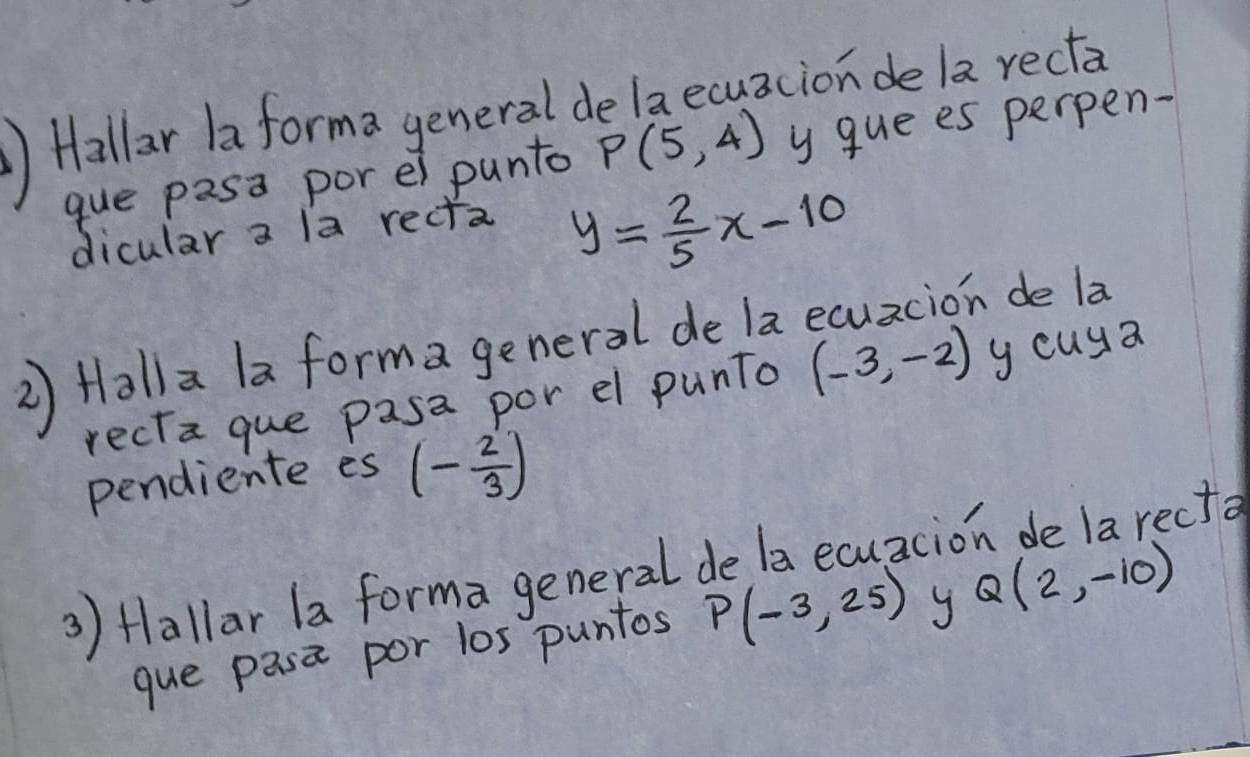 ) Hallar la forma general de la ecuación de la recta
que pasa por el punto P(5,4) y que es perpen-
dicular a la recta y = 2/5 x - 10
2) Halla la forma general de la ecuación de la
recta que pasa por el punto (-3,-2) y cuya
pendiente es (-2/3)
3) Hallar la forma general de la ecuación de la recta
que pasa por los puntos P(-3,25) y Q(2,-10)